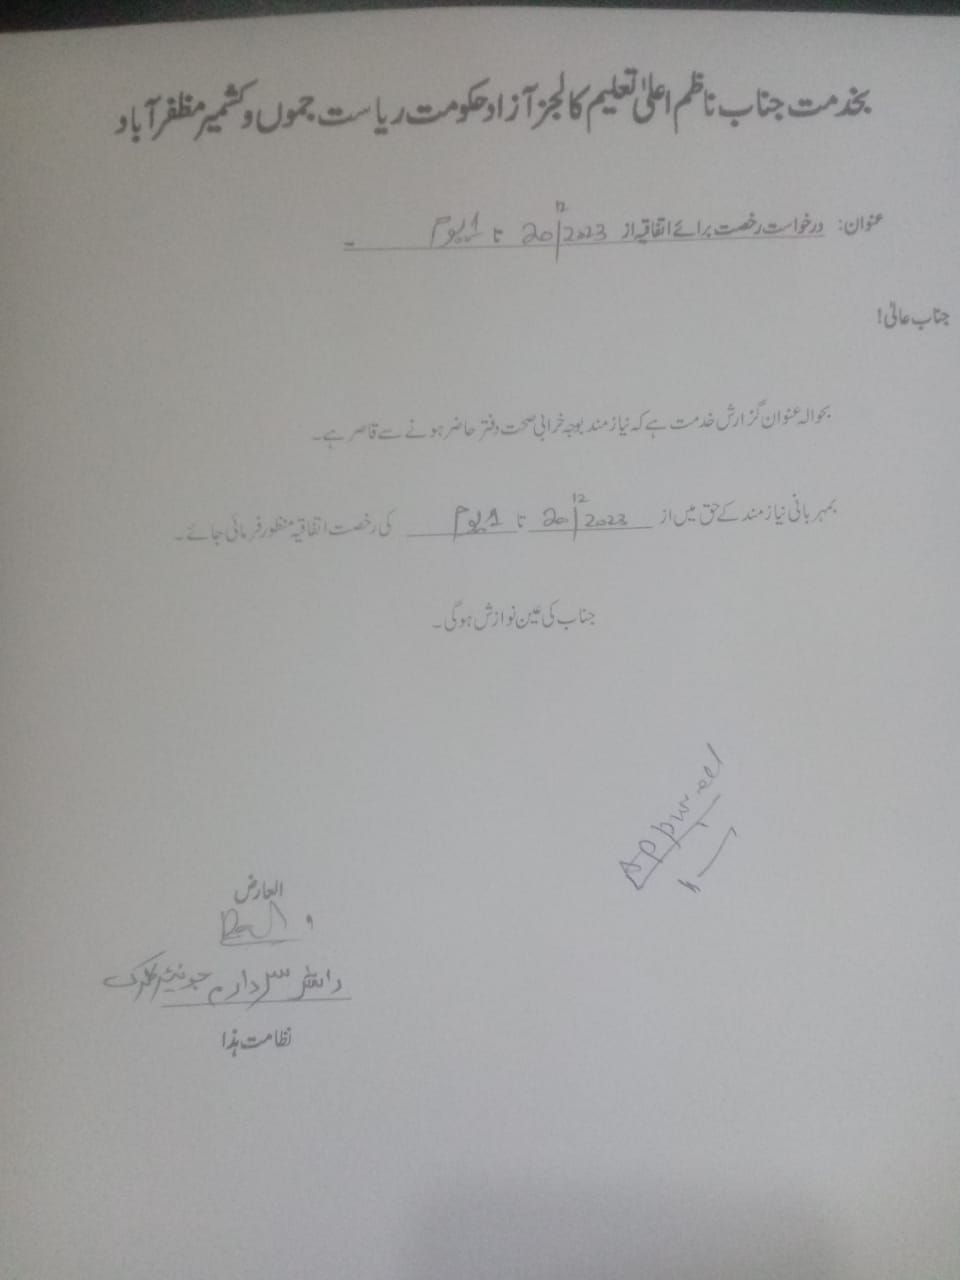 بخدمت جناب ناظم اعلیٰ تعلیم کالجز آزاد حکومت ریاست جموں و کشمیر مظفرآباد
عنوان: درخواست رخصت برائے اتفاقیہ از 20/12/2023 تا 1 یوم ۔
جناب عالی!
بحوالہ عنوان گزارش خدمت ہے کہ نیازمند بوجہ خرابی صحت دفتر حاضر ہونے سے قاصر ہے۔
بمہربانی نیازمند کے حق میں از 20/12/2023 تا 1 یوم کی رخصت اتفاقیہ منظور فرمائی جائے۔
جناب کی عین نوازش ہوگی۔
Approved
العارض
سردار جونیئر کلرک
نظامت ہذا